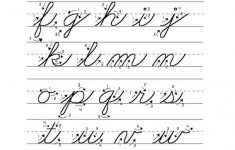 f g h i j
k l m n
o p q r s
t u v w